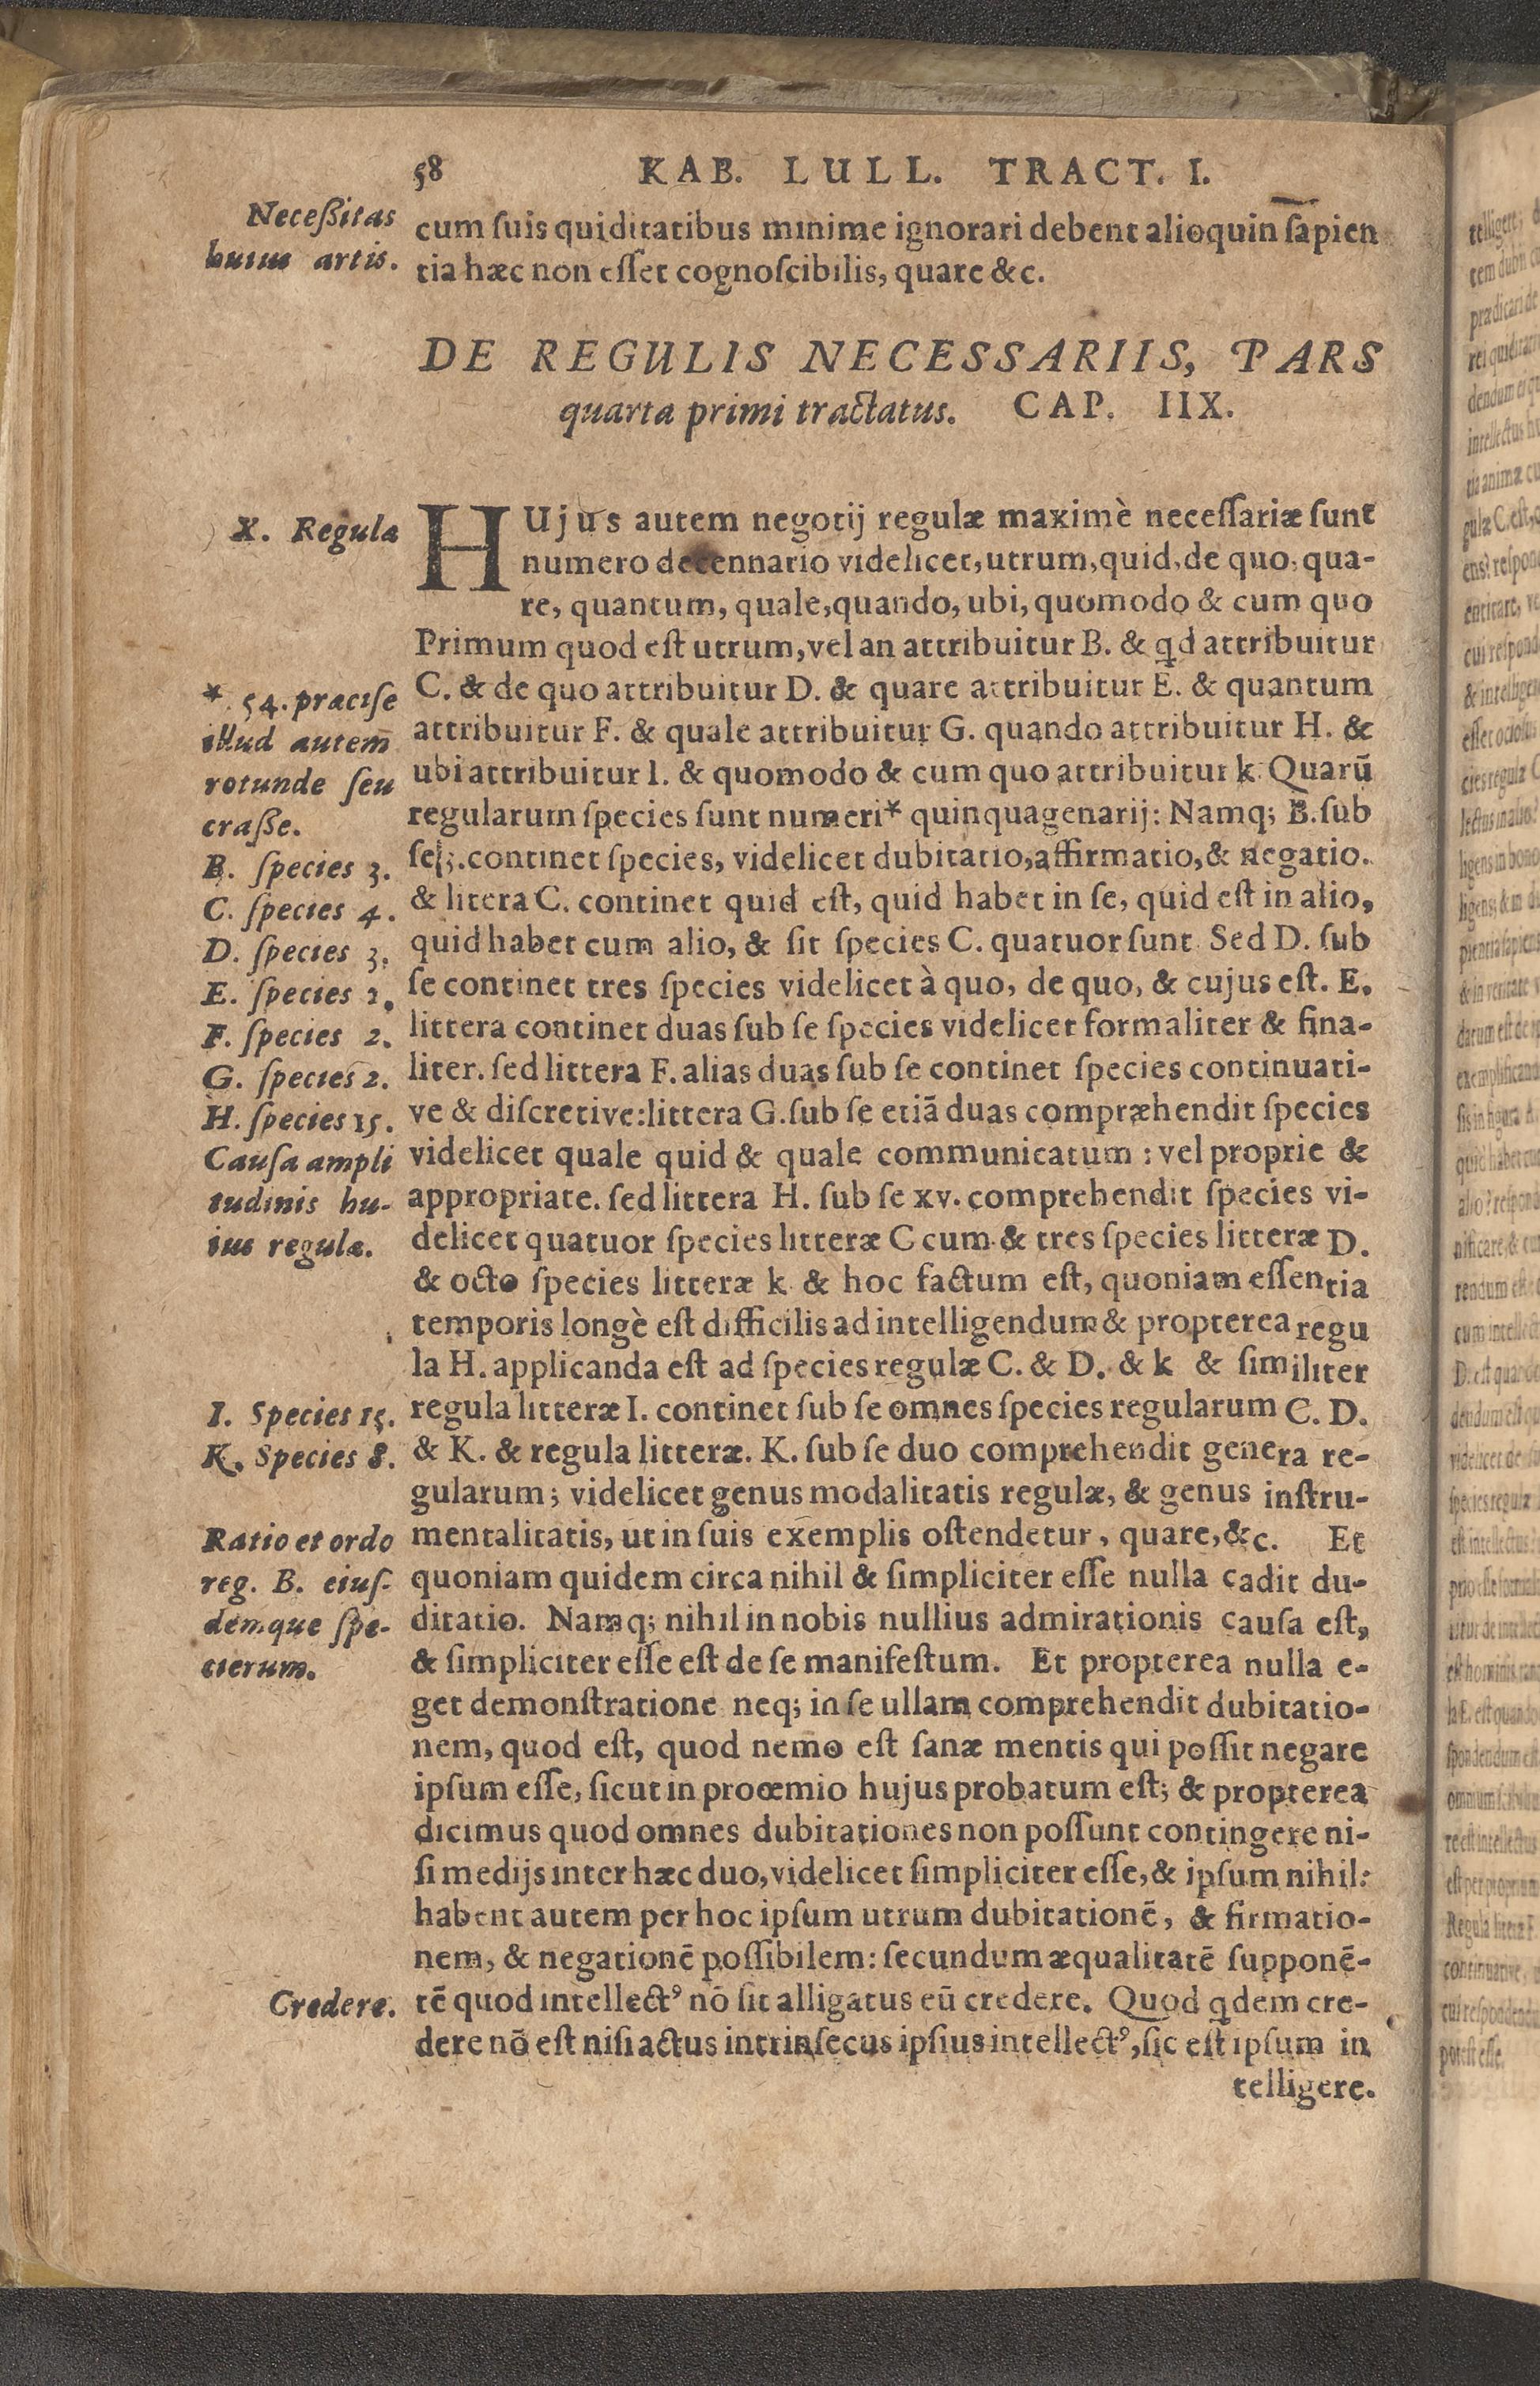 58 KAB. LULL. TRACT. I.
Neceßitas
huius artis.
cum ſuis quiditatibus minime ignorari debent alioquin ſapien
tia hæc non eſſet cognoſcibilis, quare &c.
DE REGULIS NECESSARIIS, PARS
quarta primi tractatus. CAP. IIX.
X. Regulæ
HUjus autem negotij regulæ maximè neceſſariæ ſunt
numero decennario videlicet, utrum, quid, de quo, qua-
re, quantum, quale, quando, ubi, quomodo & cum quo
Primum quod eſt utrum, vel an attribuitur B. & qd attribuitur
C. & de quo attribuitur D. & quare attribuitur E. & quantum
attribuitur F. & quale attribuitur G. quando attribuitur H. &
ubi attribuitur I. & quomodo & cum quo attribuitur k. Quarū
regularum ſpecies ſunt numeri* quinquagenarij: Namq; B. ſub
ſe 3. continet ſpecies, videlicet dubitatio, affirmatio, & negatio.
& litera C. continet quid eſt, quid habet in ſe, quid eſt in alio,
quid habet cum alio, & ſit ſpecies C. quatuor ſunt Sed D. ſub
ſe continet tres ſpecies videlicet à quo, de quo, & cujus eſt. E.
littera continet duas ſub ſe ſpecies videlicet formaliter & fina-
liter. ſed littera F. alias duas ſub ſe continet ſpecies continuati-
ve & diſcretive: littera G. ſub ſe etiā duas compræhendit ſpecies
videlicet quale quid & quale communicatum : vel proprie &
appropriate. ſed littera H. ſub ſe xv. comprehendit ſpecies vi-
delicet quatuor ſpecies litteræ C cum & tres ſpecies litteræ D.
& octo ſpecies litteræ k & hoc factum eſt, quoniam eſſentia
temporis longè eſt difficilis ad intelligendum & propterea regu
la H. applicanda eſt ad ſpecies regulæ C. & D. & k & ſimiliter
regula litteræ I. continet ſub ſe omnes ſpecies regularum C. D.
& K. & regula litteræ. K. ſub ſe duo comprehendit genera re-
gularum; videlicet genus modalitatis regulæ, & genus inſtru-
mentalitatis, ut in ſuis exemplis oſtendetur, quare, &c. Et
quoniam quidem circa nihil & ſimpliciter eſſe nulla cadit du-
ditatio. Namq; nihil in nobis nullius admirationis cauſa eſt,
& ſimpliciter eſſe eſt de ſe manifeſtum. Et propterea nulla e-
get demonſtratione neq; in ſe ullam comprehendit dubitatio-
nem, quod eſt, quod nemo eſt ſanæ mentis qui poſſit negare
ipſum eſſe, ſicut in proœmio hujus probatum eſt; & propterea
dicimus quod omnes dubitationes non poſſunt contingere ni-
ſi medijs inter hæc duo, videlicet ſimpliciter eſſe, & ipſum nihil:
habent autem per hoc ipſum utrum dubitationē, & firmatio-
nem, & negationē poſſibilem: ſecundum æqualitatē ſupponē-
tē quod intellectꝰ nō ſit alligatus eū credere. Quod qdem cre-
dere nō eſt niſi actus intrinſecus ipſius intellectꝰ, ſic eſt ipſum in
telligere.
*. 54. præciſe
illud autem
rotunde ſeu
craße.
B. ſpecies 3.
C. ſpecies 4.
D. ſpecies 3.
E. ſpecies 2.
F. ſpecies 2.
G. ſpecies 2.
H. ſpecies 15.
Cauſa ampli
tudinis hu-
ius regulæ.
I. Species 15.
K. Species 8.
Ratio et ordo
reg. B. eiuſ-
demque ſpe-
cierum.
Credere.